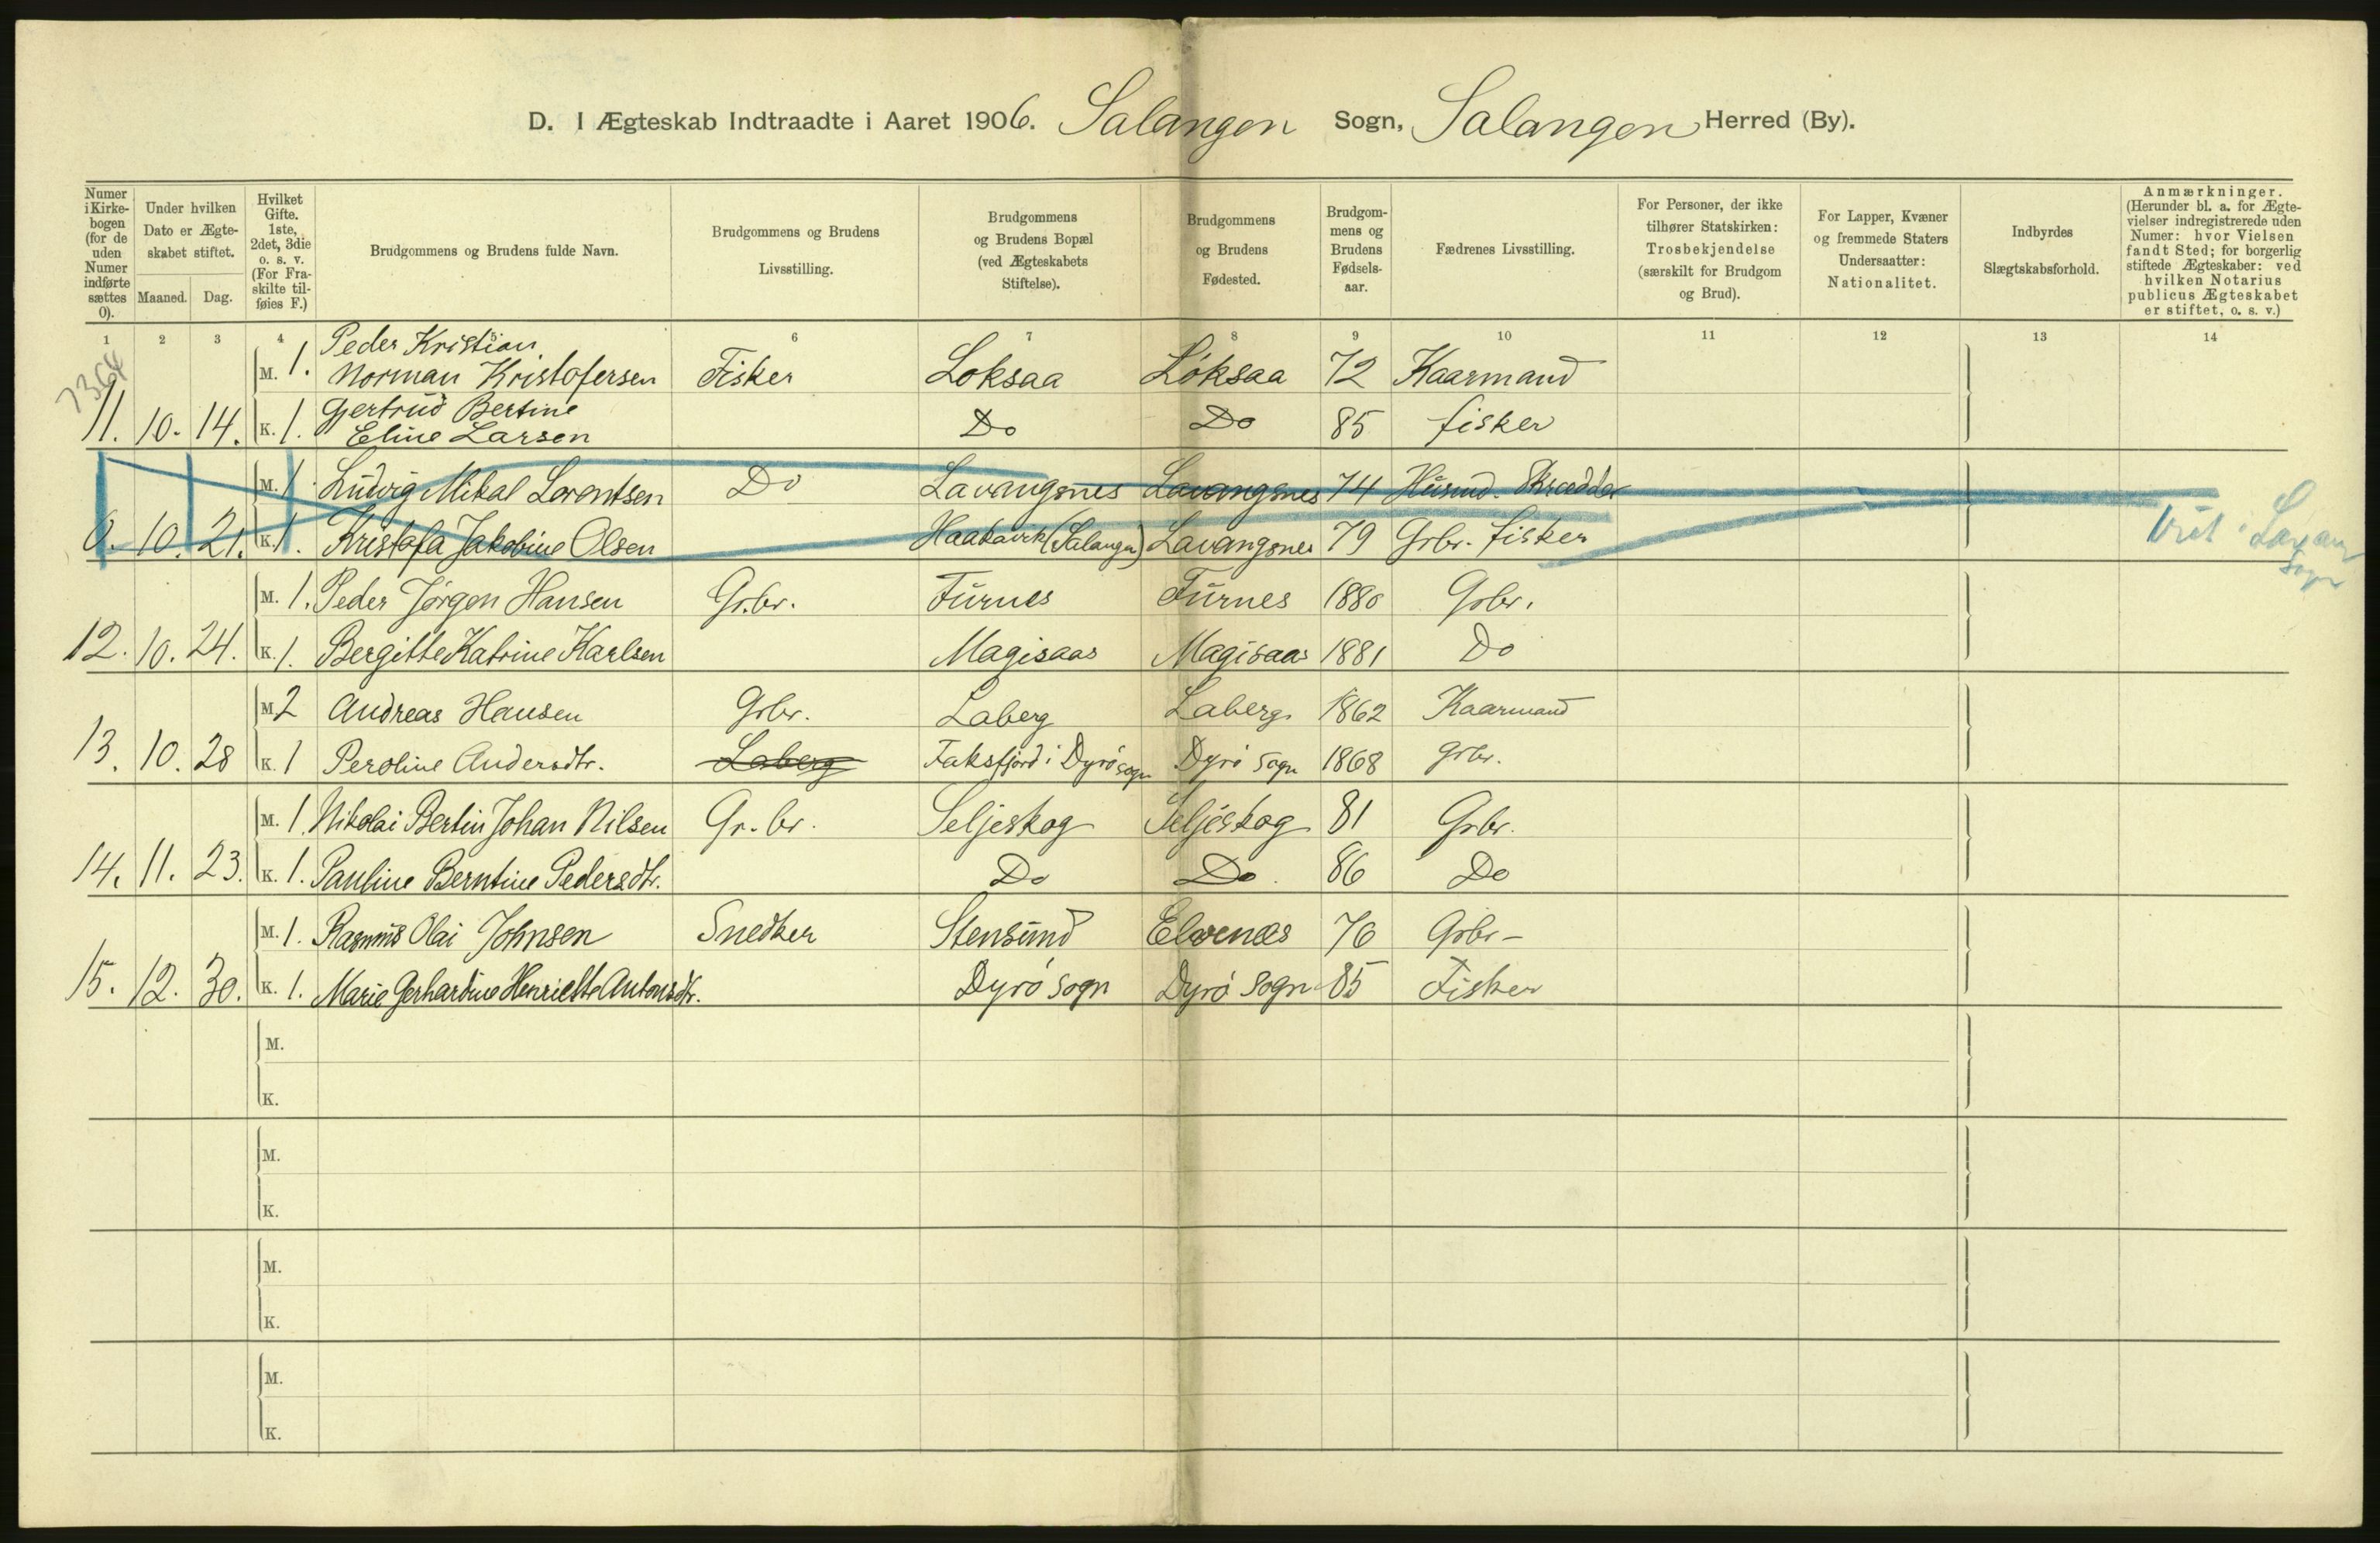 D. I Ægteskab Indtraadte i Aaret 1906. Salangen Sogn, Salangen Herred (By).
Numer i Kirkebogen (for de uden Numer indførte sættes 0).
Under hvilken Dato er Ægteskabet stiftet.
Maaned. Dag.
Hvilket Gifte. 1ste, 2det, 3die o. s. v. (For Fraskilte tilføies F.)
Brudgommens og Brudens fulde Navn.
Brudgommens og Brudens Livsstilling.
Brudgommens og Brudens Bopæl (ved Ægteskabets Stiftelse).
Brudgommens og Brudens Fødested.
Brudgommens og Brudens Fødselsaar.
Fædrenes Livsstilling.
For Personer, der ikke tilhører Statskirken: Trosbekjendelse (særskilt for Brudgom og Brud).
For Lapper, Kvæner og fremmede Staters Undersaatter: Nationalitet.
Indbyrdes Slægtskabsforhold.
Anmærkninger. (Herunder bl. a. for Ægtevielser indregistrerede uden Numer: hvor Vielsen fandt Sted; for borgerlig stiftede Ægteskaber: ved hvilken Notarius publicus Ægteskabet er stiftet, o. s. v.)
1 2 3 4 5 6 7 8 9 10 11 12 13 14
7364
M. 1. Peder Kristian
Norman Kristofersen Fisker Loksaa Loksaa 72 Kaarmand
11. 10. 14. K. 1. Gjertrud Bertine
Eline Larsen Do Do 85 fisker
M. 1. Ludvig Mikal Lorentsen Do Lavangsnes Lavangsnes 74 Husmd. Skrædder
0. 10. 21. K. 1. Kristofa Jakobine Olsen Haakavik (Salangen) Lavangsnes 79 Grbr. fisker
M. 1. Peder Jørgen Hansen Gr.br. Furnes Furnes 1880 Grbr.
12. 10. 24. K. 1. Bergitte Katrine Karlsen Magisaas Magisaas 1881 Do
M. 2 Andreas Hansen Grbr. Laberg Laberg 1862 Kaarmand
13. 10. 28 K. 1 Peroline Andersdtr. Laberg Faksfjord i Dyrö sogn Dyrö Sogn 1868 grbr.
M. 1. Nikolai Bertin Johan Nilsen Gr.br. Seljeskog Seljeskog 81 Grbr.
14. 11. 23. K. 1. Pauline Berntine Pedersdtr. Do Do 86 Do
M. 1. Rasmus Olai Johnsen Snedker Stensund Elvenes 76 Grbr
15. 12. 30. K. 1. Marie Gerhardine Henriette Antonsdtr. Dyrö Sogn Dyrö Sogn 85 Fisker
M.
K.
M.
K.
M.
K.
M.
K.